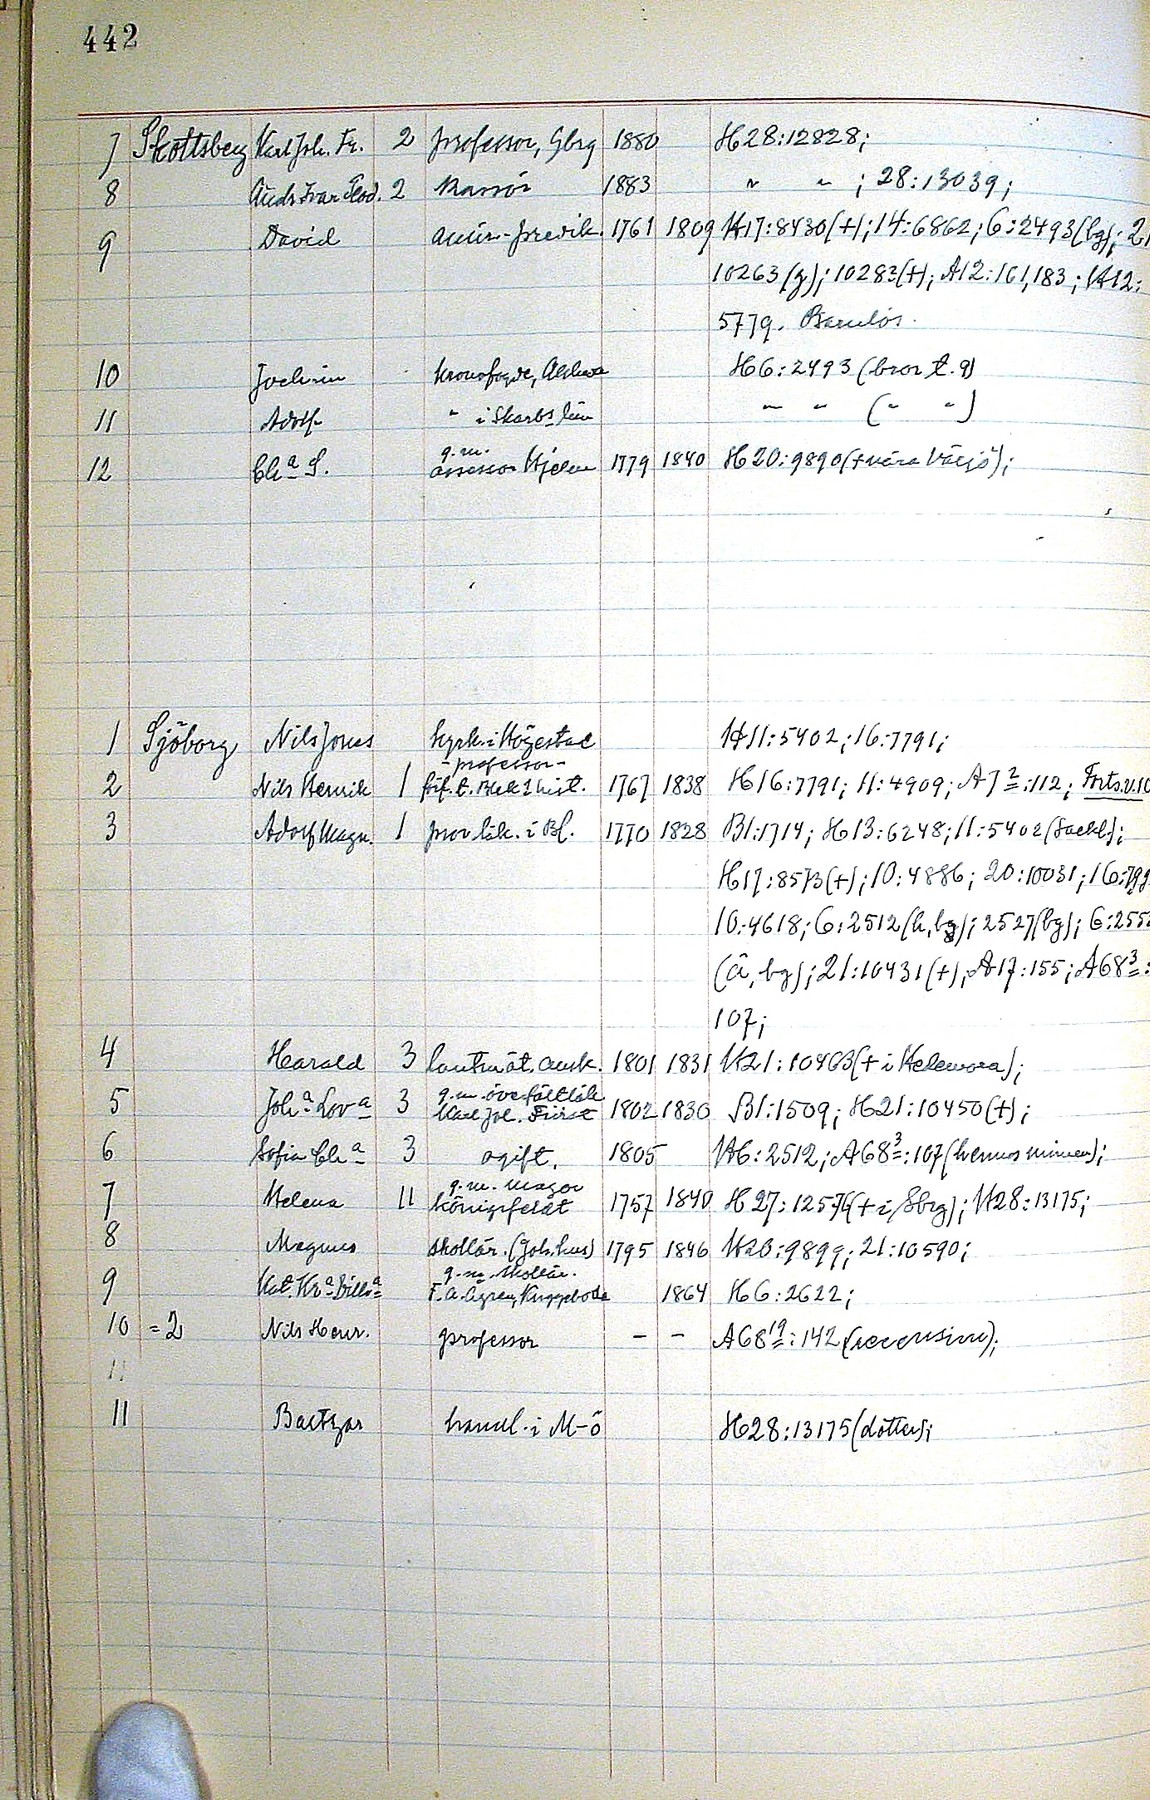 442
7 Skottsberg Karl Joh. Fr. 2 professor, Gbrg 1880 H28:12828;
8 Ands Ivar Teod. 2 kassör 1883 " " ; 28:13039;
9 David amir.-predik. 1761 1809 H17:8430(+); 14:6862; 6:2493(bg); 21
10263(g); 10283(+); A12:161,183; H12:
5779.
10 Jochim kronofogde, H6:2493 (bror t. 9)
11 Adolf " i Skarbs län " " ( " " )
12 Ch<sup>a</sup> S. g.m.
assessor Hjelm 1779 1840 H20:9890(+nära Växjö);
1 Sjöborg Nils Jonas kyrk. i Högestad H11:5402; 16:7791;
-professor-
2 Nils Henrik 1 förf. t. Blek. hist. 1767 1838 H16:7791; 11:4909; A7<sup>2</sup>:112; Forts.v.10
3 Adolf Magn. 1 prov.läk. i Bl. 1770 1828 B1:1714; H13:6248; 11:5402
H17:8573(+); 10:4886; 20:10031; 16:
10:4618; 6:2512(h,bg); 2527(bg); 6:255
(å, bg); 21:10431(+); A17:155; A68<sup>3</sup>:
107;
4 Harald 3 lantmät. ausk. 1801 1831 H21:10463(+ i
5 Joh<sup>a</sup> Lov<sup>a</sup> 3 g.m. överfältläk
Karl Joh. Fürst 1802 1830 B1:1509; H21:10450(+);
6 Sofia Ch<sup>a</sup> 3 ogift. 1805 H6:2512; A68<sup>3</sup>:107(hennes minnen);
g.m. major
7 Helena 11 Königsfeldt 1757 1840 H27:12576(+ i Sbrg); H28:13175;
8 Magnus skollär. (Joh.hus) 1795 1846 H20:9899; 21:10590;
9 Kat. Kr<sup>a</sup> Bills<sup>a</sup> g.m. skollär.
F.A. Ågren, Knggebode 1864 H6:2622;
10 =2 Nils Henr. professor – – A68<sup>19</sup>:142 (recension);
11
11 Baltzar handl. i M-ö H28:13175(dotter);